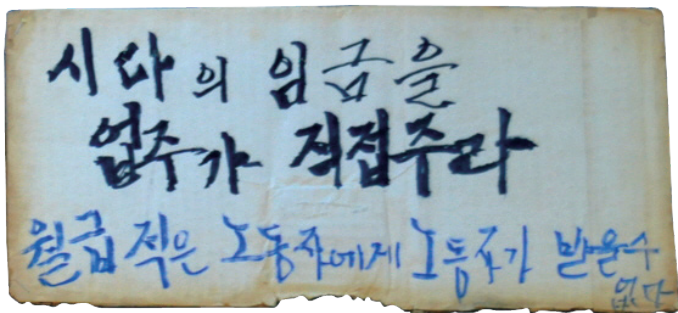 시다의 임금을
업주가 직접주라
월급 적은 노동자에게 노동자가 받을수
없다